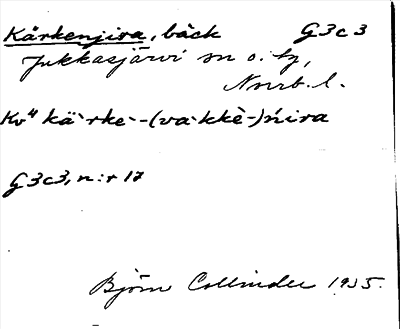 Kärkenjira, bäck G3c3
Jukkasjärvi sn o. tg,
Norrb. l.
Kv⁴ kä̀rke-(va̓kkè-)ńira
G3c3, n:r 17
Björn Collinder 1935.